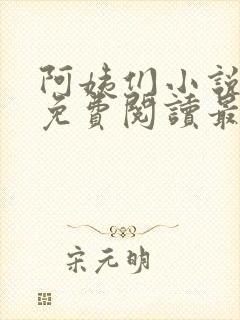 阿姨们小說
免費閱讀最
宋元明